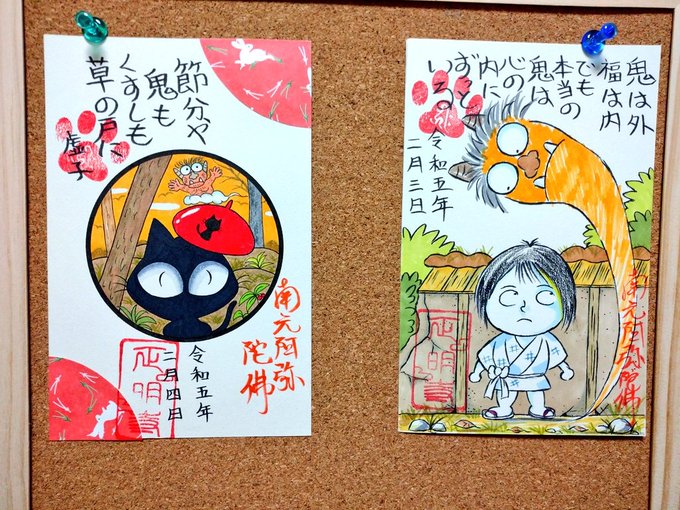 節分や
鬼も
くすしも
草の戸に
虚子
南无阿弥
陀佛
令和五年
二月四日
鬼は外
福は内
でも
本当の
鬼は
心の
内に
ずっと
いる
令和五年
二月三日
南无阿弥陀佛